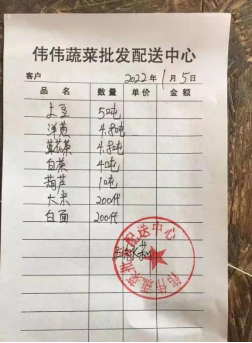 伟伟蔬菜批发配送中心
客户 2022年1月5日
品名 数量 单价 金额
土豆 50吨
洋葱 4.8吨
4.8吨
白菜 40吨
葫芦 10吨
大米 200代
白面 200代
伟伟蔬菜批发配送中心